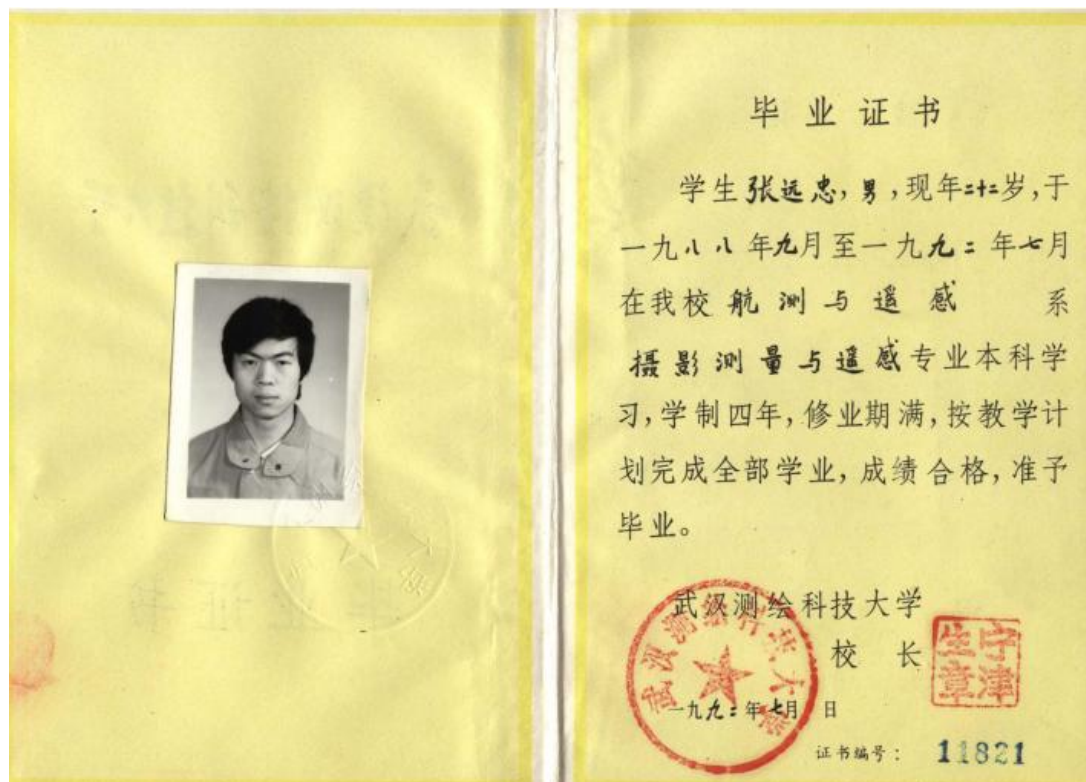 毕业证书
学生张远忠,男,现年二十二岁,于
一九八八年九月至一九九二年七月
在我校航测与遥感 系
摄影测量与遥感专业本科学
习,学制四年,修业期满,按教学计
划完成全部学业,成绩合格,准予
毕业。
武汉测绘科技大学
校 长
宁津生章
武汉测绘科技大学
一九九二年七月 日
证书编号: 11821